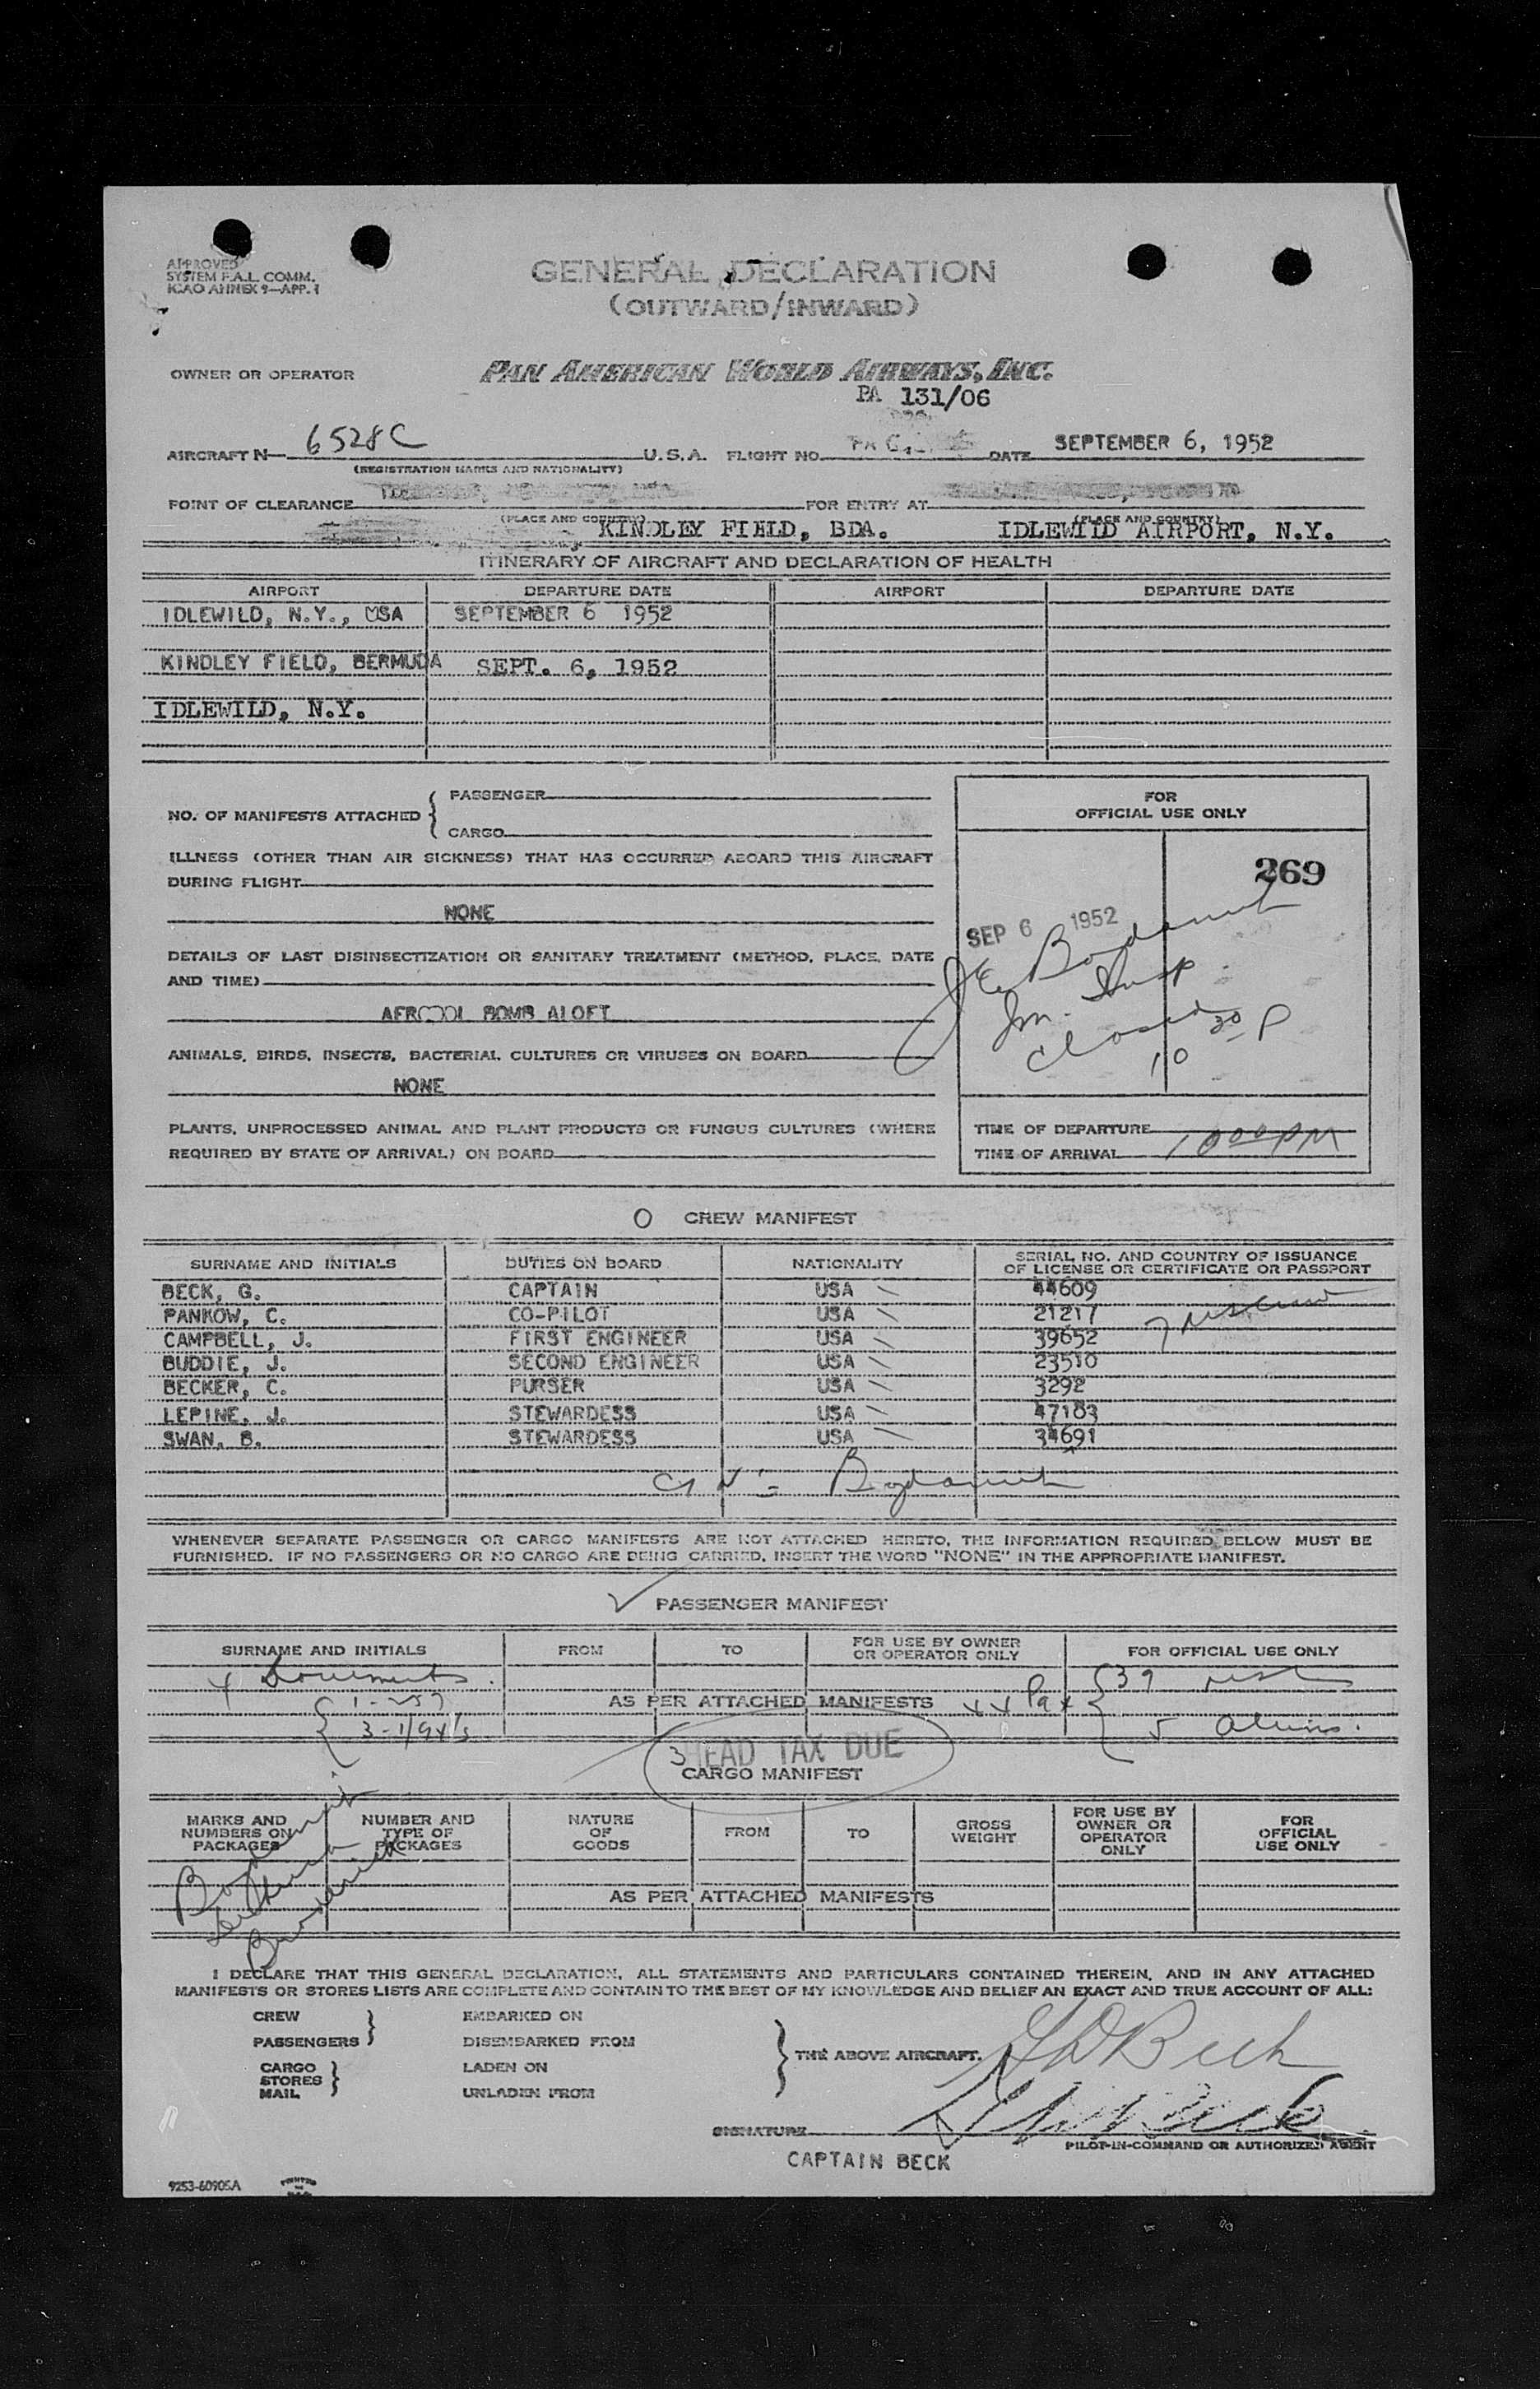 APPROVED
SYSTEM F.A.L. COMM.
ICAO ANNEX 9—APP. 1
GENERAL DECLARATION
(OUTWARD/INWARD)
OWNER OR OPERATOR PAN AMERICAN WORLD AIRWAYS, INC.
PA 131/06
AIRCRAFT N— 6528C U.S.A. FLIGHT NO. DATE SEPTEMBER 6, 1952
(REGISTRATION MARKS AND NATIONALITY)
POINT OF CLEARANCE FOR ENTRY AT
(PLACE AND COUNTRY) (PLACE AND COUNTRY)
KINDLEY FIELD, BDA. IDLEWILD AIRPORT, N.Y.
ITINERARY OF AIRCRAFT AND DECLARATION OF HEALTH
AIRPORT DEPARTURE DATE AIRPORT DEPARTURE DATE
IDLEWILD, N.Y., USA SEPTEMBER 6 1952
KINDLEY FIELD, BERMUDA SEPT. 6, 1952
IDLEWILD, N.Y.
NO. OF MANIFESTS ATTACHED { PASSENGER
CARGO
ILLNESS (OTHER THAN AIR SICKNESS) THAT HAS OCCURRED ABOARD THIS AIRCRAFT
DURING FLIGHT
NONE
DETAILS OF LAST DISINSECTIZATION OR SANITARY TREATMENT (METHOD, PLACE, DATE
AND TIME)
AEROSOL BOMB ALOFT
ANIMALS, BIRDS, INSECTS, BACTERIAL CULTURES OR VIRUSES ON BOARD
NONE
PLANTS, UNPROCESSED ANIMAL AND PLANT PRODUCTS OR FUNGUS CULTURES (WHERE
REQUIRED BY STATE OF ARRIVAL) ON BOARD
FOR
OFFICIAL USE ONLY
269
SEP 6 1952
Im. Insp
closed
10 30 P
TIME OF DEPARTURE
TIME OF ARRIVAL 1000PM
CREW MANIFEST
SURNAME AND INITIALS DUTIES ON BOARD NATIONALITY SERIAL NO. AND COUNTRY OF ISSUANCE
OF LICENSE OR CERTIFICATE OR PASSPORT
BECK, G. CAPTAIN USA 44609
PANKOW, C. CO-PILOT USA 21217
CAMPBELL, J. FIRST ENGINEER USA 39652
BUDDIE, J. SECOND ENGINEER USA 23510
BECKER, C. PURSER USA 3292
LEPINE, J. STEWARDESS USA 47103
SWAN, B. STEWARDESS USA 34691
WHENEVER SEPARATE PASSENGER OR CARGO MANIFESTS ARE NOT ATTACHED HERETO, THE INFORMATION REQUIRED BELOW MUST BE
FURNISHED. IF NO PASSENGERS OR NO CARGO ARE BEING CARRIED, INSERT THE WORD "NONE" IN THE APPROPRIATE MANIFEST.
PASSENGER MANIFEST
SURNAME AND INITIALS FROM TO FOR USE BY OWNER
OR OPERATOR ONLY FOR OFFICIAL USE ONLY
4 Documents. 39
AS PER ATTACHED MANIFESTS 44 Pax
5 Aliens.
3 HEAD TAX DUE
CARGO MANIFEST
MARKS AND
NUMBERS ON
PACKAGES NUMBER AND
TYPE OF
PACKAGES NATURE
OF
GOODS FROM TO GROSS
WEIGHT FOR USE BY
OWNER OR
OPERATOR
ONLY FOR
OFFICIAL
USE ONLY
AS PER ATTACHED MANIFESTS
I DECLARE THAT THIS GENERAL DECLARATION, ALL STATEMENTS AND PARTICULARS CONTAINED THEREIN, AND IN ANY ATTACHED
MANIFESTS OR STORES LISTS ARE COMPLETE AND CONTAIN TO THE BEST OF MY KNOWLEDGE AND BELIEF AN EXACT AND TRUE ACCOUNT OF ALL:
CREW EMBARKED ON
PASSENGERS } DISEMBARKED FROM
CARGO LADEN ON
STORES }
MAIL UNLADEN FROM
} THE ABOVE AIRCRAFT.
G D Beck
SIGNATURE
PILOT-IN-COMMAND OR AUTHORIZED AGENT
CAPTAIN BECK
9253-60905A